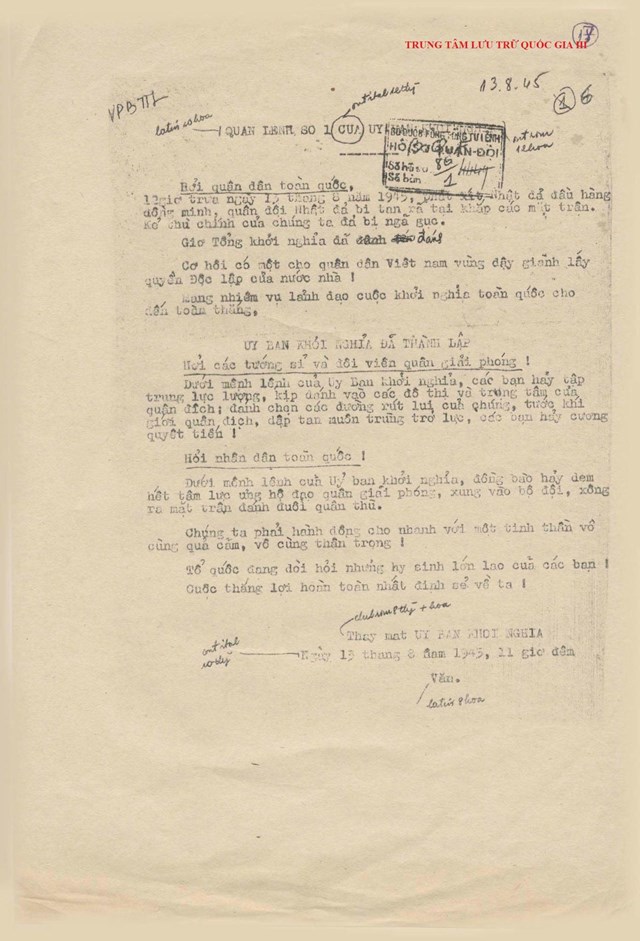 17
TRUNG TÂM LƯU TRỮ QUỐC GIA III
13.8.45
VPBTTL
6
QUAN LENH SO 1 CUA UY
HỒ SƠ QUÂN ĐỘI
Số hồ sơ 86
Số bản 1
Hởi quân dân toàn quốc,
12giờ trưa ngày 13 tháng 8 năm 1945, phát xít Nhật đã đầu hàng
đồng minh, quân đội Nhật đã bị tan rã tại khắp các mặt trận.
Kẻ thù chính của chúng ta đã bị ngã gục.
Giờ Tổng khởi nghĩa đã đánh
Cơ hội có một cho quân dân Việt nam vùng dậy giành lấy
quyền Độc lập của nước nhà !
Mang nhiệm vụ lãnh đạo cuộc khởi nghĩa toàn quốc cho
đến toàn thắng,
UỶ BAN KHỞI NGHĨA ĐÃ THÀNH LẬP
Hởi các tướng sĩ và đội viên quân giải phóng !
Dưới mệnh lệnh của Uỷ Ban khởi nghĩa, các bạn hãy tập
trung lực lượng, kịp đánh vào các đô thị và trung tâm của
quân địch; đánh chặn các đường rút lui của chúng, tước khí
giới quân địch, đạp tan muôn trùng trở lực, các bạn hãy cương
quyết tiến !
Hởi nhân dân toàn quốc !
Dưới mệnh lệnh của Uỷ ban khởi nghĩa, đồng bào hãy đem
hết tâm lực ủng hộ đạo quân giải phóng, xung vào bộ đội, xông
ra mặt trận đánh đuổi quân thù.
Chúng ta phải hành động cho nhanh với một tinh thần vô
cùng quả cảm, vô cùng thận trọng !
Tổ quốc đang đòi hỏi những hy sinh lớn lao của các bạn !
Cuộc thắng lợi hoàn toàn nhất định sẽ về ta !
Thay mat UY BAN KHOI NGHIA
Ngày 13 tháng 8 năm 1945, 11 giờ đêm
Văn.